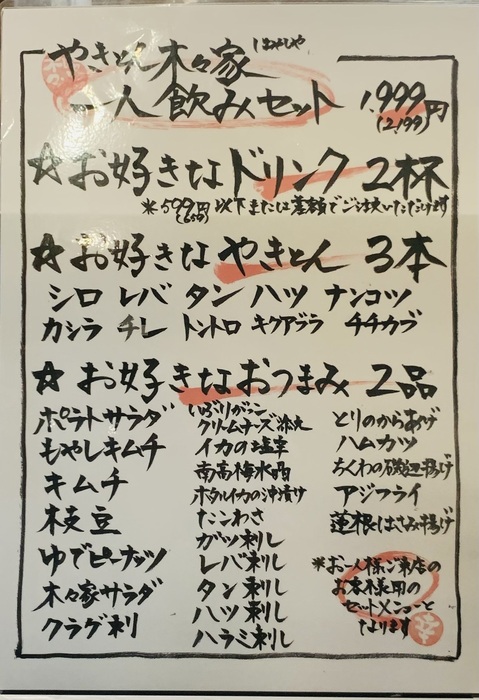 やきとん木々家
はやしや
一人飲みセット 1,999円
(2199)
☆お好きなドリンク 2杯
※599円以下または差額でご注文いただけます
(659)
☆お好きなやきとん 3本
シロ レバ タン ハツ ナンコツ
カシラ チレ トントロ キクアブラ チチカブ
☆お好きなおつまみ 2品
ポテトサラダ
もやしキムチ
キムチ
枝豆
ゆでピーナッツ
木々家サラダ
クラゲ刺
いぶりがっこ
クリームチーズ
イカの塩辛
南高梅水晶
ホタルイカの沖漬け
たこわさ
ガツ刺し
レバ刺し
タン刺し
ハツ刺し
ハラミ刺し
とりのからあげ
ハムカツ
ちくわの磯辺揚げ
アジフライ
蓮根はさみ揚げ
※お一人様ご来店の
お客様用の
セットメニューと
なります